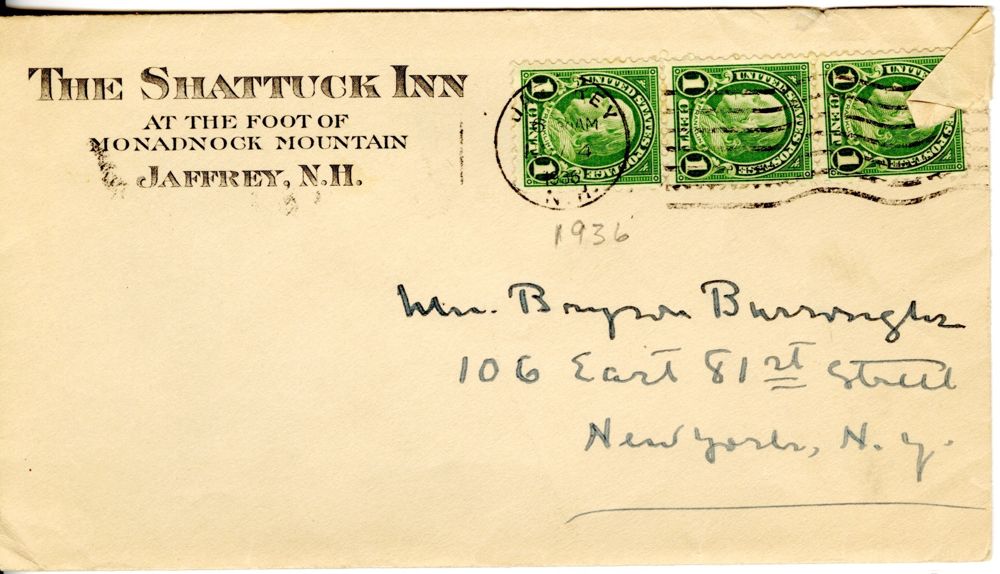 THE SHATTUCK INN
AT THE FOOT OF
MONADNOCK MOUNTAIN
JAFFREY, N.H.
1 CENT 1 UNITED STATES POSTAGE
1 CENT 1 UNITED STATES POSTAGE
1 CENT 1 UNITED STATES POSTAGE
AM
4
1936
N.H.
1936
Mrs. Bryson Burroughs
106 East 81st Street
New York, N.Y.